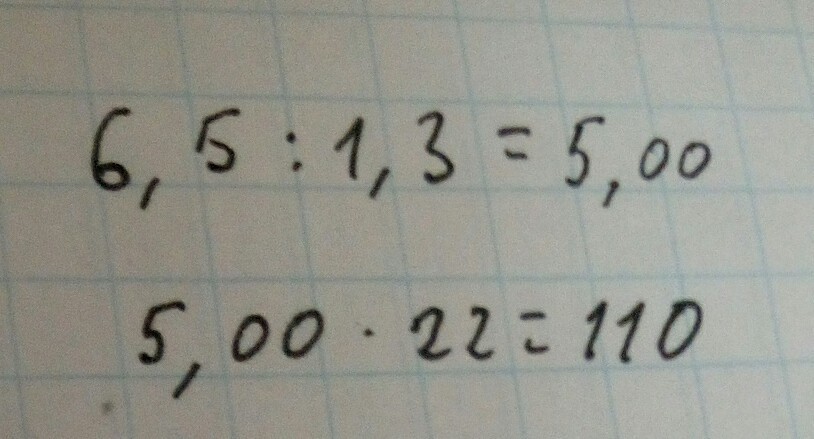 6,5 : 1,3 = 5,00
5,00 · 22 = 110